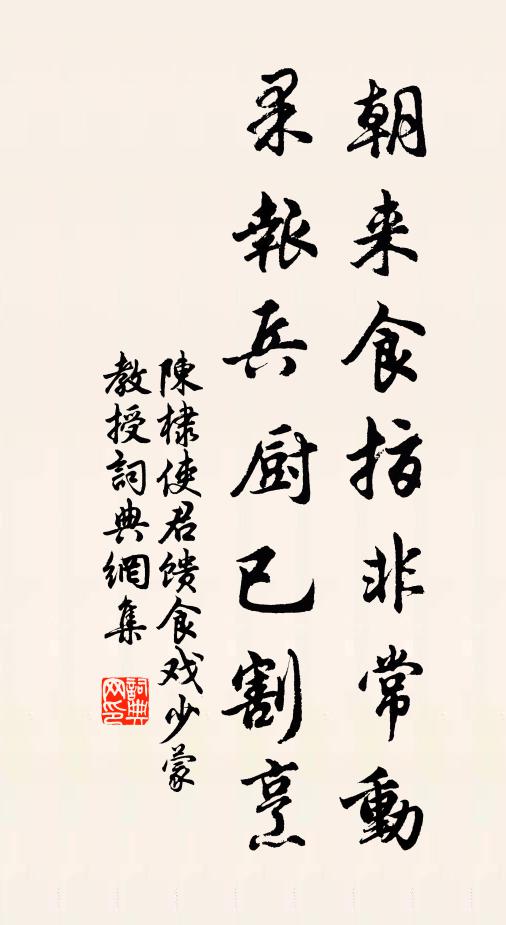 朝来食指非常動
果報兵厨已割烹
陳棣使君馈食戏少蒙
教授詞典網集
詞典网印